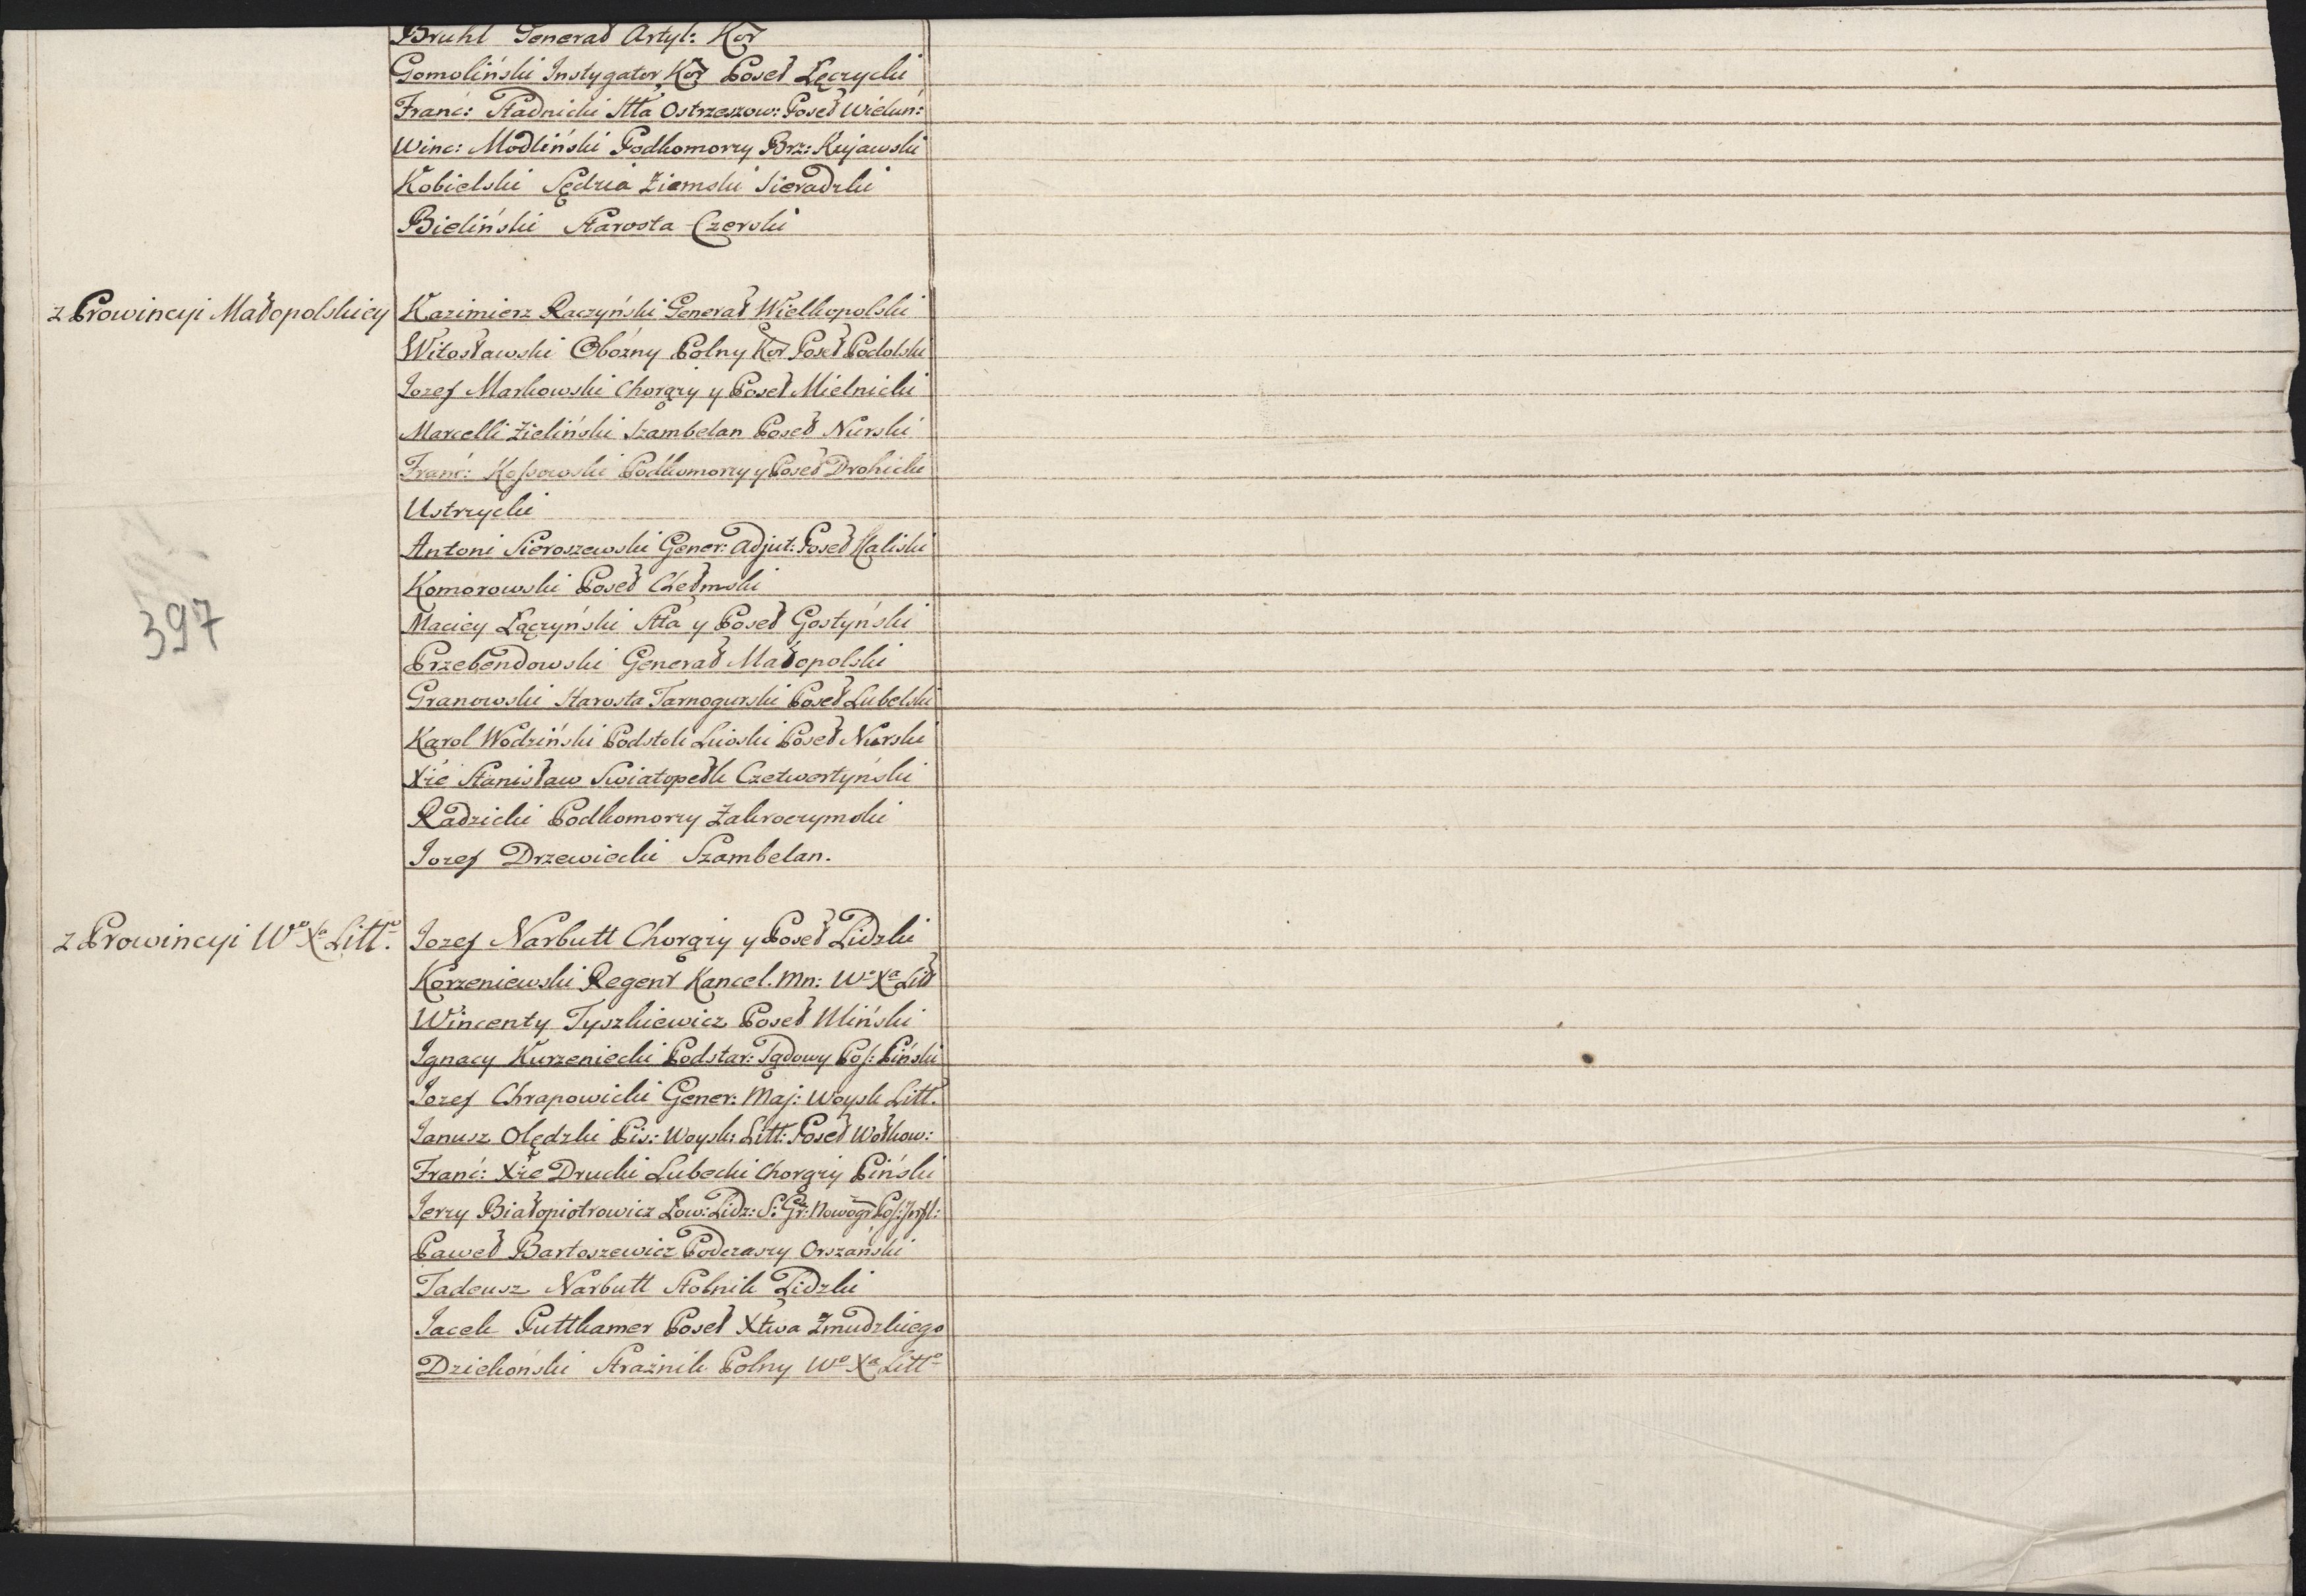 Bruhl Generał Artyl: Kor
Gomoliński Instygator Kor Poseł Łęczycki
Franc: Stadnicki Stta Ostrzeszow: Poseł Wieluń:
Winc: Modliński Podkomorzy Brz: Kujawski
Kobielski Sędzia Ziemski Sieradzki
Bieliński Starosta Czerski
z Prowincyi Małopolskiey
Kazimierz Raczyński Generał Wielkopolski
Witosławski Obożny Polny Kor Poseł Podolski
Jozef Markowski Chorąży y Poseł Mielnicki
Marcelli Zieliński Szambelan Poseł Nurski
Franc: Kossowski Podkomorzy y Poseł Drohicki
Ustrzycki
Antoni Sieroszewski Gener: Adjut: Poseł Kaliski
Komorowski Poseł Chełmski
397
Maciey Łączyński Stta y Poseł Gostyński
Przebendowski Generał Małopolski
Granowski Starosta Tarnogurski Poseł Lubelski
Karol Wodziński Podstoli Liwski Poseł Nurski
Xże Stanisław Swiatopełk Czetwertyński
Radzicki Podkomorzy Zakroczymski
Jozef Drzewiecki Szambelan.
z Prowincyi Wo Xa Litto.
Jozef Narbutt Chorąży y Poseł Lidzki
Korzeniewski Regent Kancel. Mn: Wo Xa Lit
Wincenty Tyszkiewicz Poseł Miński
Ignacy Kurzeniecki Podstar: Sądowy Pos: Piński
Jozef Chrapowicki Gener: Maj: Woysk Litt.
Janusz Olędzki Pis: Woysk: Litt: Poseł Wołkow:
Franc: Xże Drucki Lubecki Chorąży Piński
Jerzy Białopiotrowicz Łow: Lidz: S: Gr: Nowogr
Paweł Bartoszewicz Podczaszy Orszański
Tadeusz Narbutt Stolnik Lidzki
Jacek Puttkamer Poseł Xtwa Żmudzkiego
Dziekoński Strażnik Polny Wo Xa Litto